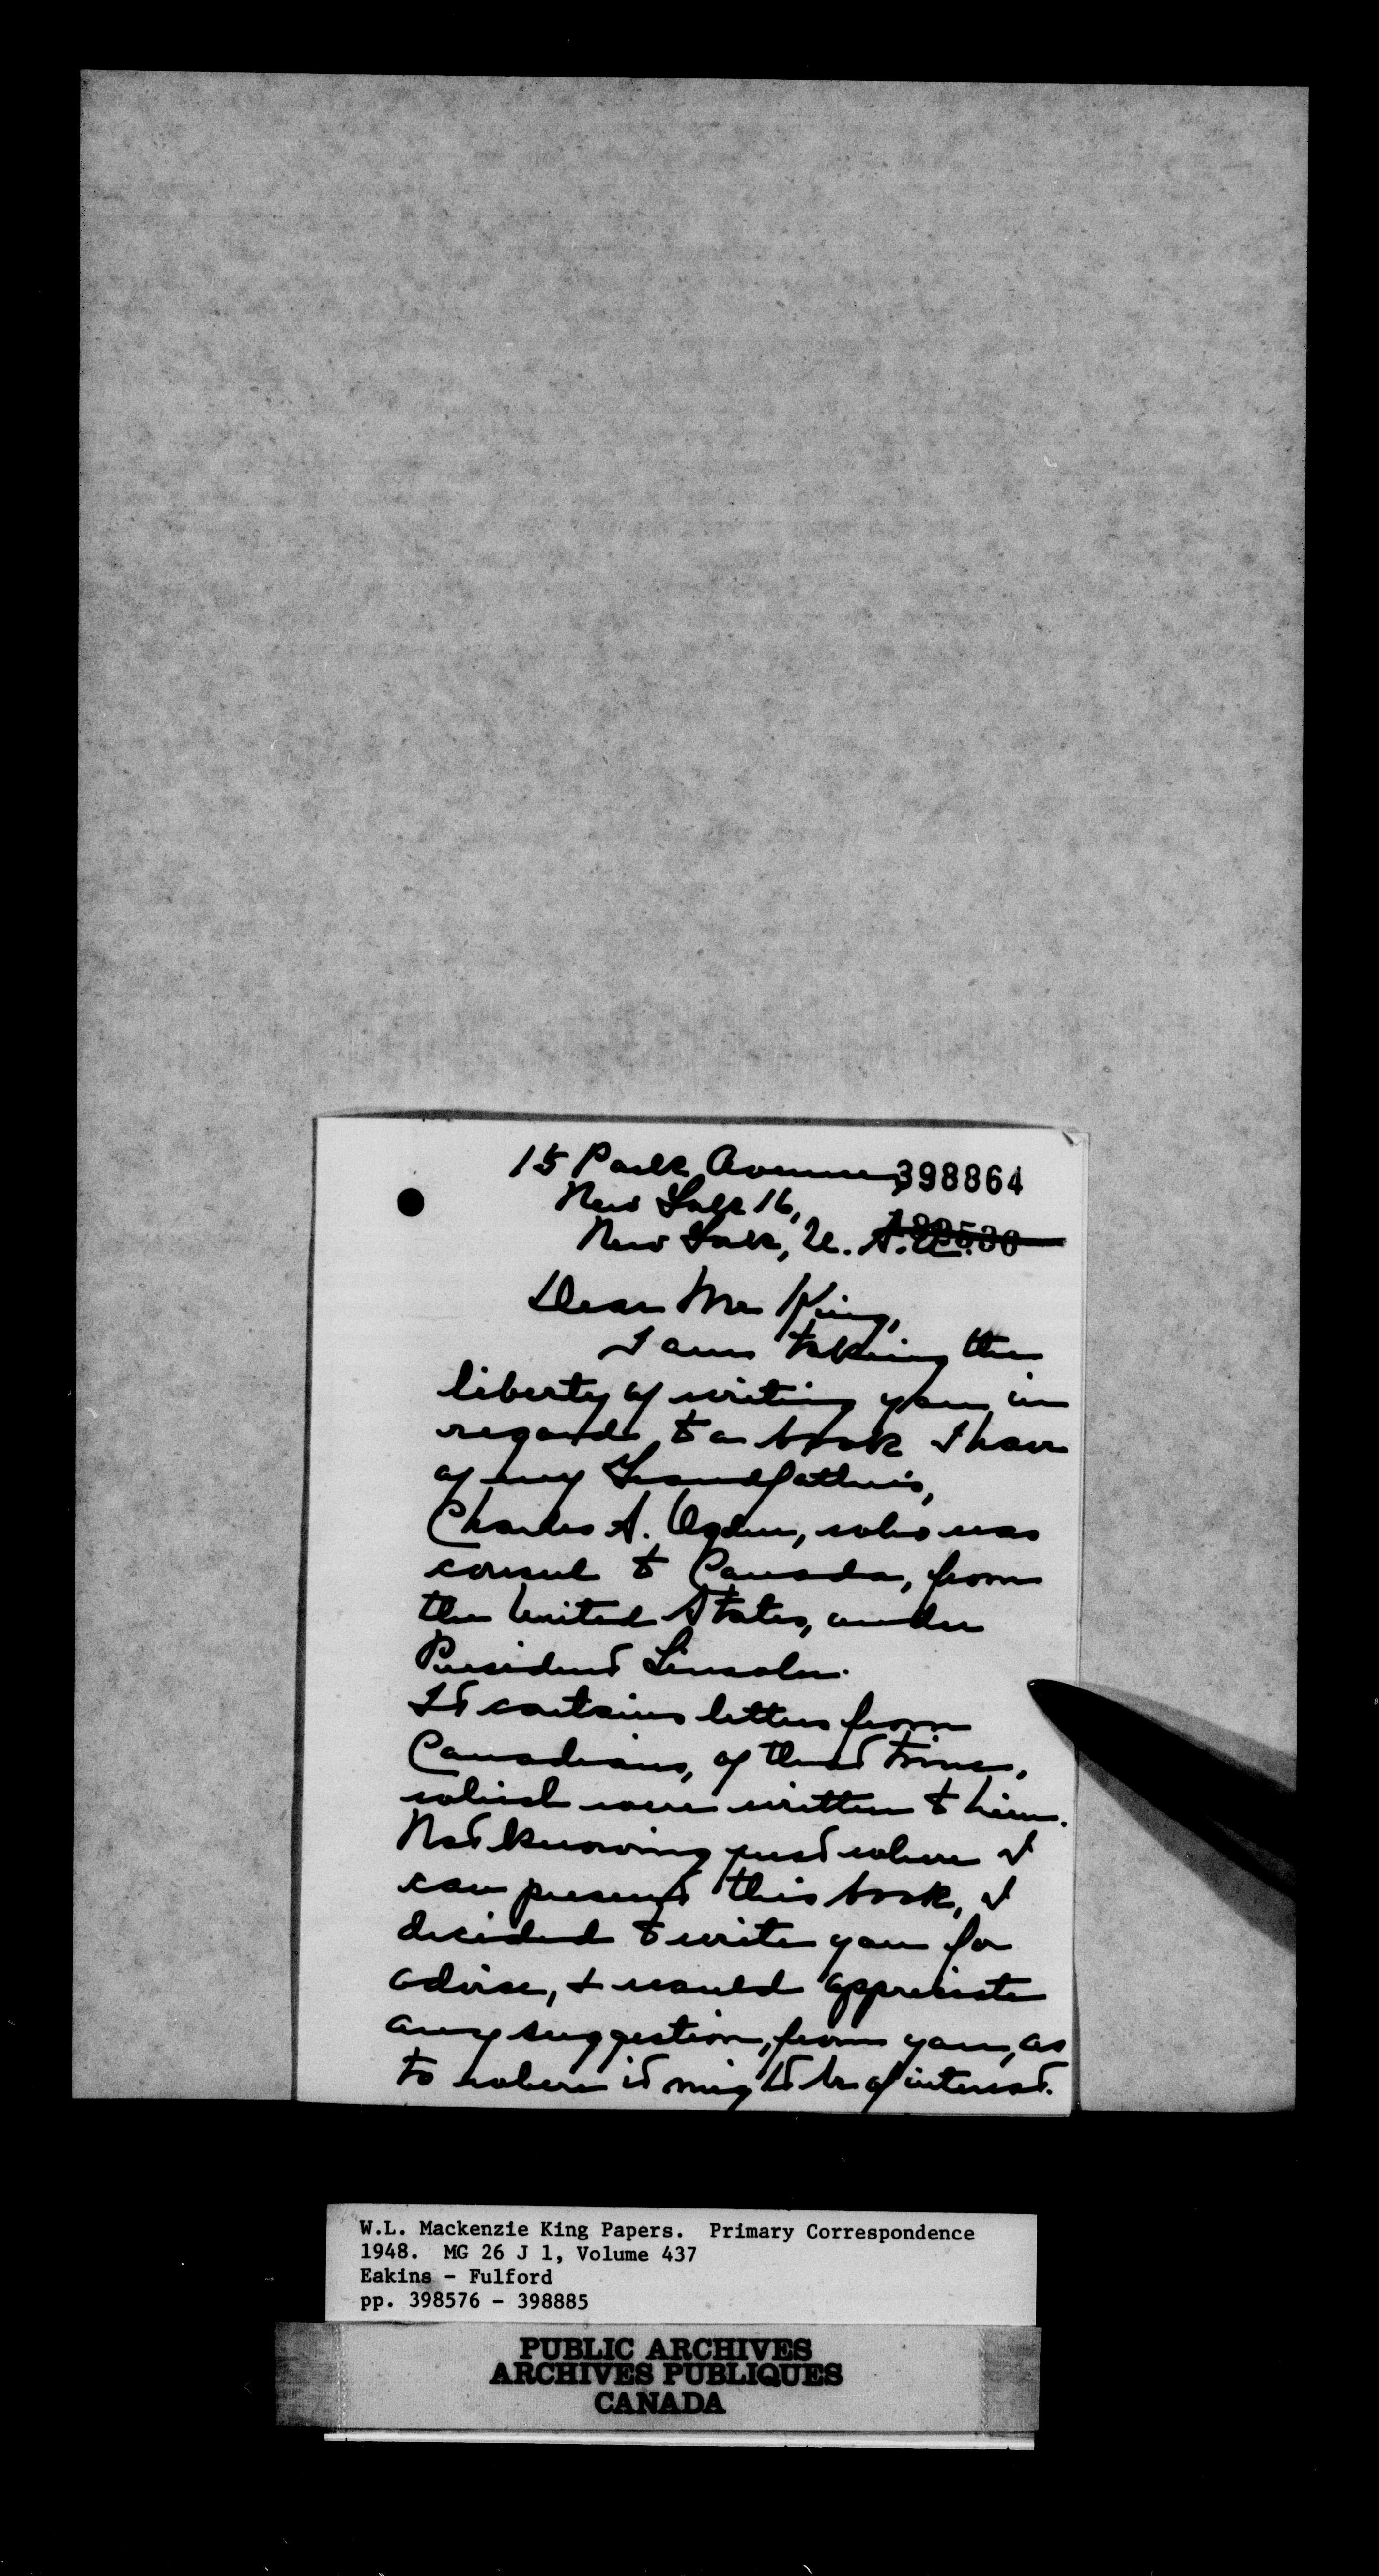 15 Park Avenue, 398864
New York 16,
New York, U. S. A.
Dear Mr King,
I am taking the
liberty of writing you in
regards to a book I have
of my Grandfather's,
Charles S. Ogden, who was
consul to Canada, from
the United States, under
President Lincoln.
It contains letters from
Canadians, of that time,
which were written to him.
Not knowing just where I
can present this book, I
decided to write you for
advise, & would appreciate
any suggestion, from you, as
to where it might be of interest.
W.L. Mackenzie King Papers. Primary Correspondence
1948. MG 26 J 1, Volume 437
Eakins - Fulford
pp. 398576 - 398885
PUBLIC ARCHIVES
ARCHIVES PUBLIQUES
CANADA